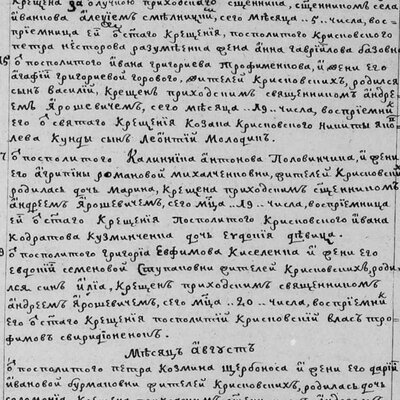 крещена за отлучкою приходского сщенника, сщенником села
иванова алеѯiем смѣлницкiй, сего мѣсяца ..5.. числа, вос-
прiемница ей ѿ стаго крещенiя, посполитого крисковского
петра несторова разумѣнка жена анна гаврiилова
ѿ посполитого ивана григориева трофименкова, и жени его
агафiи григориевой горового, жителей крисковских, родился
сын василiй, крещен приходским священником андре-
ем ярошевичем, сего мѣсяца ..19.. числа, воспрiемник
его ѿ святаго крещенiя козака крисковского никиты
лева кунды сын леонтiй молодик.
7 ѿ посполитого калиника антонова половинчика, и жени
его агрипины романовой михалченковни, жителей крисковских
родилась дочь марина, крещена приходским сщенником
андреем ярошевичем, сего мца ..19.. числа, воспрiемница
ея ѿ стаго крещенiя посполитого крисковского ивана
кодратова кузминченка дочь евдокiя дѣвица.
ѿ посполитого григорiа евфимова киселенка и жени его
евдокiй семеновой ступаковни жителей крисковских, роди-
лся син илiа, крещен приходским священником
андреем ярошевичем, сего мца ..20.. числа, воспрiемник
его ѿ стаго крещенiя посполитiй крисковскiй влас тро-
фимовъ свиридоненокъ.
мѣсяцъ августъ
ѿ посполитого петра козмина щербоноса и жени его дарiи
ивановой бурмаковни жителей крисковских, родилась дочь